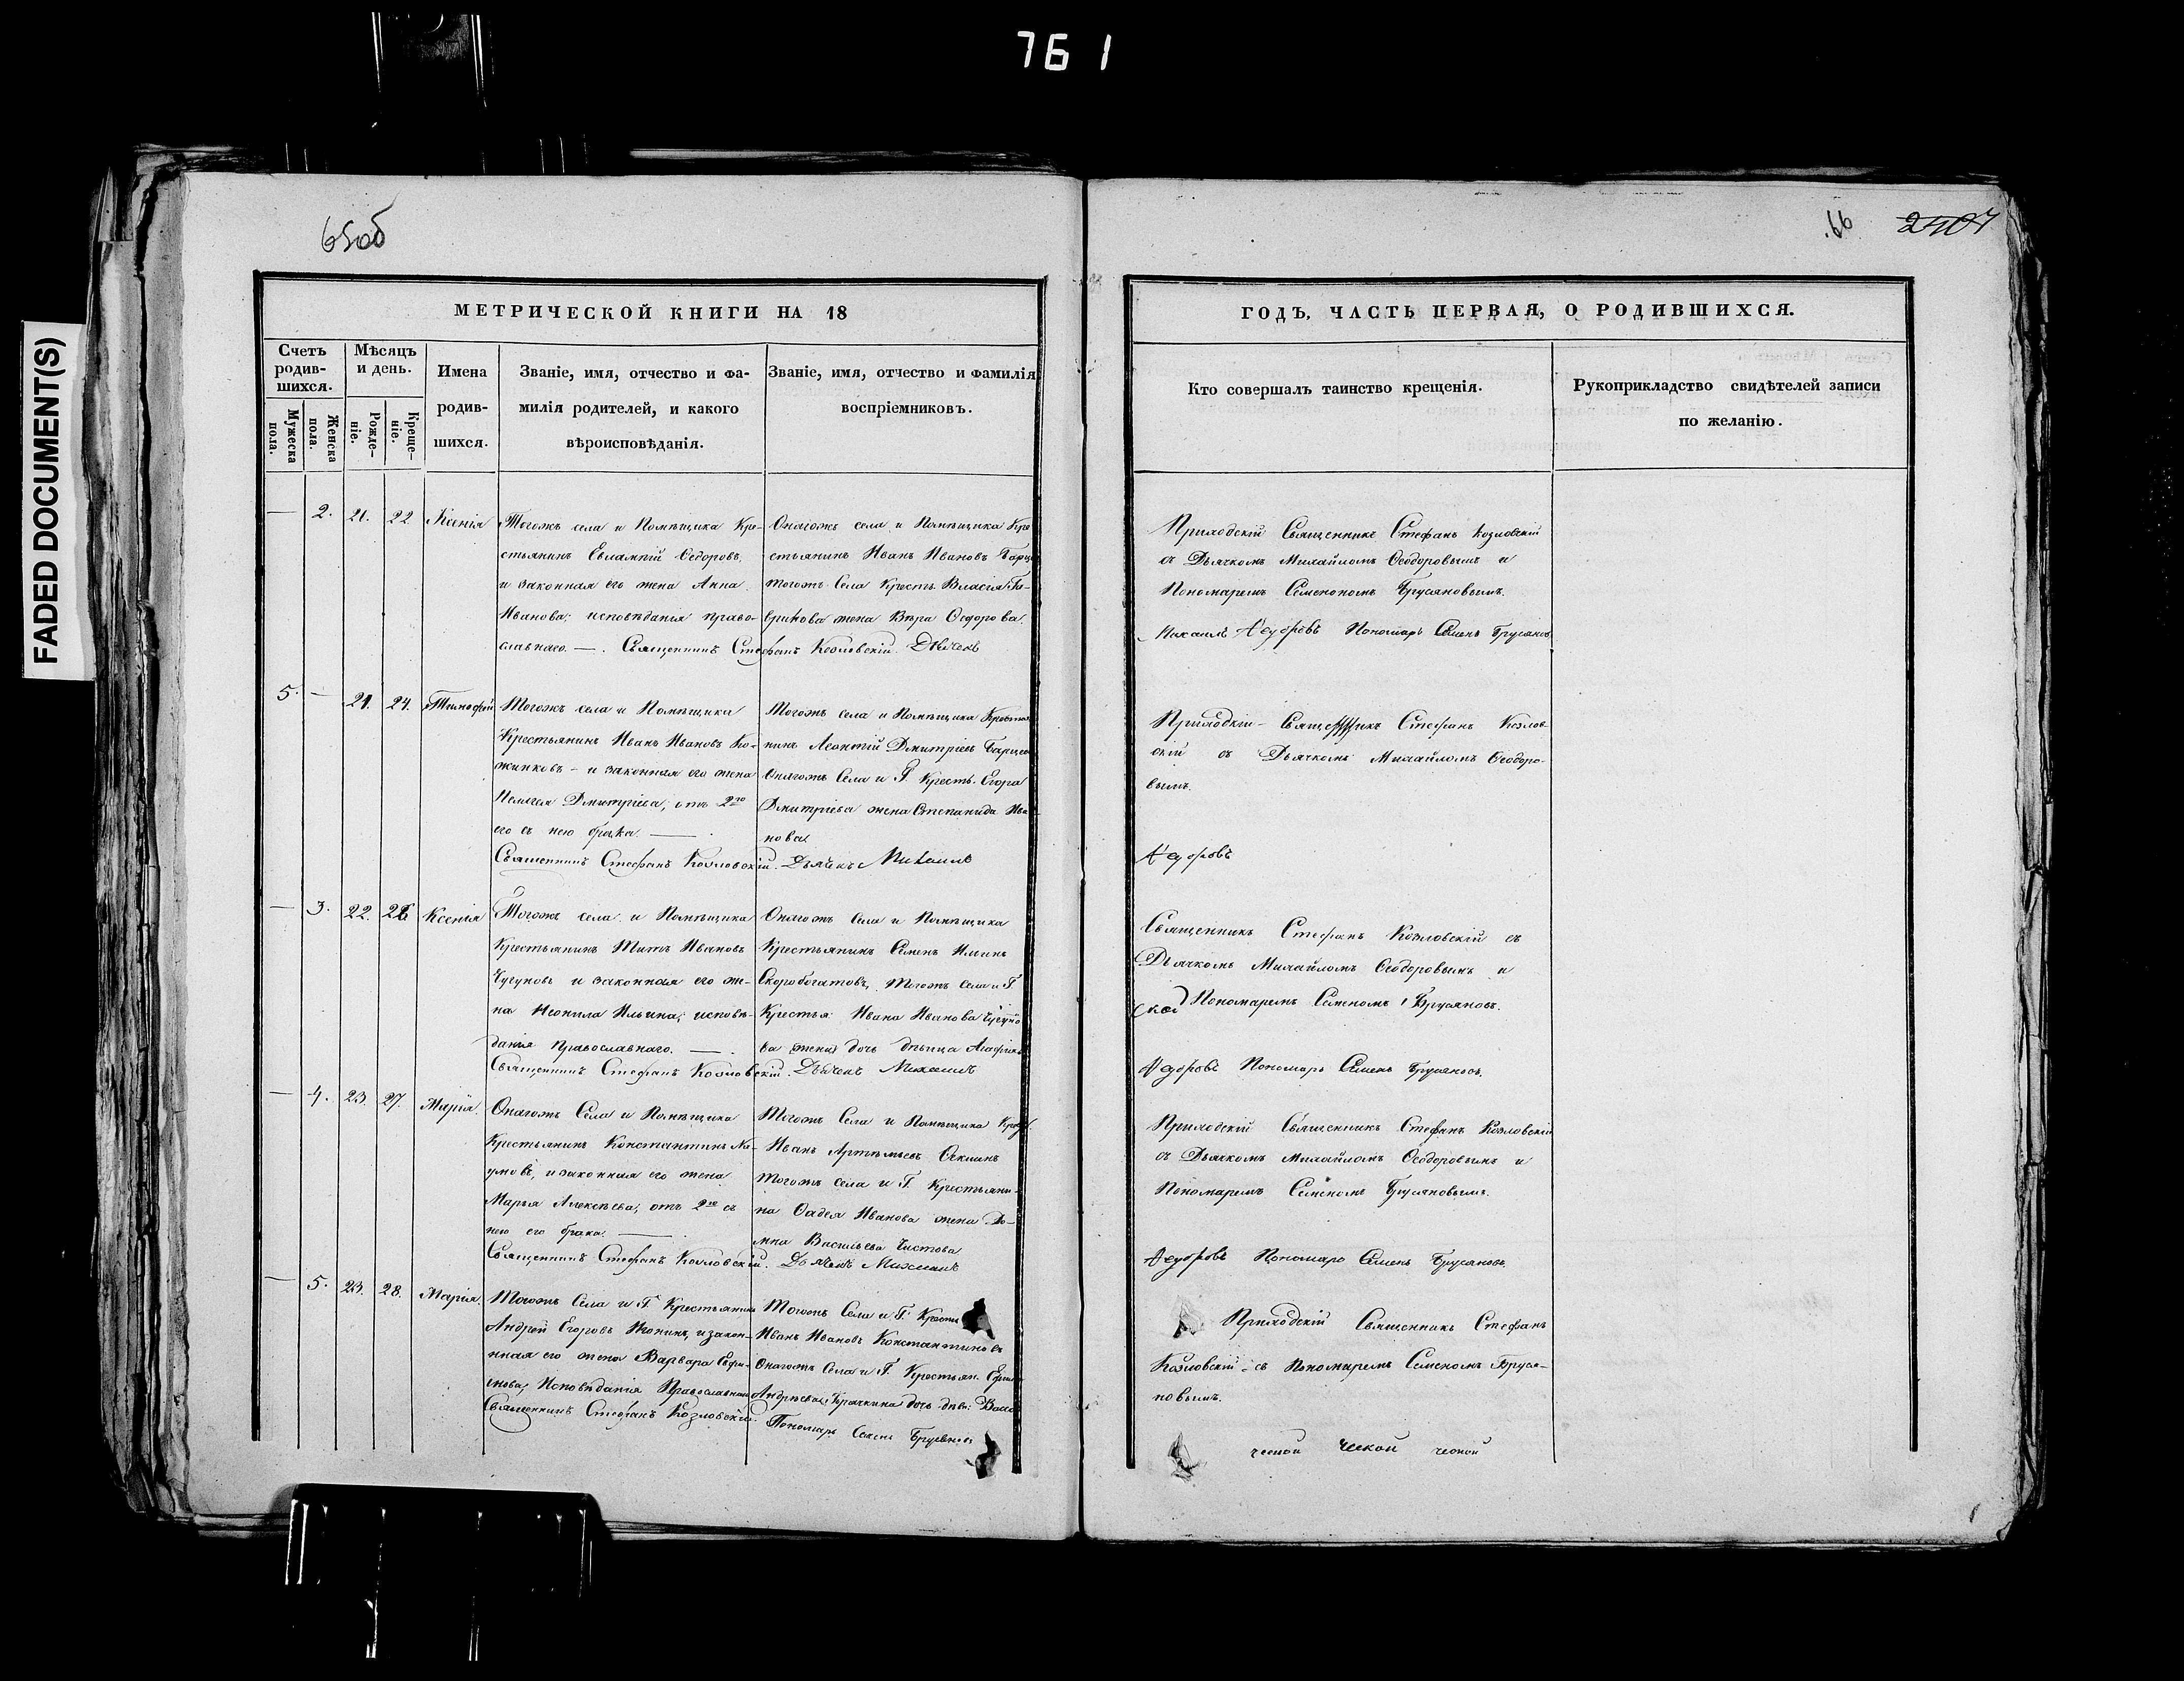 761
FADED DOCUMENT(S)
65об
МЕТРИЧЕСКОЙ КНИГИ НА 18
Счетъ родившихся.
Мужеска пола.
Женска пола.
Мѣсяцъ и день.
Рожденіе.
Крещеніе.
Имена родившихся.
Званіе, имя, отчество и фамилія родителей, и какого вѣроисповѣданія.
Званіе, имя, отчество и фамилія воспріемниковъ.
— 2. 21. 22 Ксенія
Тогожъ села и Помѣщика Кре-
стьянинъ Евлампій Ѳедоровъ,
и законная его жена Анна
Иванова; исповѣданія право-
славнаго. —. Священникъ Стефанъ Козловскій. Дьячекъ
Онагожъ села и Помѣщика Кре
стьянинъ Иванъ Ивановъ
тогожъ Села Крест. Власія Га-
врилова жена Вѣра Ѳедорова.
5. — 21. 24. Тимофей
Тогожъ села и Помѣщика
Крестьянинъ Иванъ Ивановъ Ко-
жинковъ — и законная его жена
Пелагея Дмитріева, отъ 2го
его съ нею брака. —
Священникъ Стефанъ Козловскій. Дьячекъ Михаилъ
Тогожъ села и Помѣщика Крестья
нинъ Леонтій Дмитріевъ
Онагожъ Села и П. Крестъ. Егора
Дмитріева жена Степанида Ива
нова
— 3. 22. 26 Ксенія
Тогожъ села и Помѣщика
Крестьянинъ Титъ Ивановъ
Чугуновъ и законная его же-
на Неонила Ильина; исповѣ-
данія православнаго. —.
Священникъ Стефанъ Козловскій. Дьячекъ Михаилъ
Онагожъ Села и Помѣщика
Крестьянинъ Семенъ Ильинъ
Скоробогатовъ, тогожъ Села и П
Крестья Ивана Иванова Чугуно
ва дочь дѣвица
— 4. 23. 27. Марія
Онагожъ Села и Помѣщика
Крестьянинъ Константинъ На-
умовъ, и законная его жена
Марья Алексѣева, отъ 2го съ
нею его брака. —
Священникъ Стефанъ Козловскій. Дьячекъ Михаилъ
Тогожъ Села и Помѣщика
Иванъ Артемьевъ
тогожъ села и П. Крестьяни-
на Ѳадея Иванова жена До-
мна Васильева Чистова
— 5. 23. 28. Марія.
Тогожъ Села и П. Крестьянинъ
Андрей Егоровъ и закон-
ная его жена Варвара
Исповѣданія Православнаго
Священникъ Стефанъ Козловскій.
Тогожъ Села и П. Крестья
Иванъ Ивановъ Константиновъ
Онагожъ Села и П. Крестьян.
Андрѣева дочь дѣв:
Пономарь Семенъ Брусяновъ
66
2407
ГОДЪ, ЧАСТЬ ПЕРВАЯ, О РОДИВШИХСЯ.
Кто совершалъ таинство крещенія.
Рукоприкладство свидѣтелей записи по желанію.
Приходскій Священникъ Стефанъ Козловскій
съ Дьячкомъ Михайломъ Ѳеодоровымъ и
Пономаремъ Семеномъ Брусяновымъ.
Михаилъ Ѳедоровъ Пономарь Семенъ Брусяновъ
Приходскій Священникъ Стефанъ Козлов-
скій съ Дьячкомъ Михайломъ Ѳеодоро-
вымъ.
Ѳедоровъ
Священникъ Стефанъ Козловскій съ
Дьячкомъ Михайломъ Ѳеодоровымъ и
Пономаремъ Семеномъ Брусяновъ.
Ѳедоровъ Пономарь Семенъ Брусяновъ.
Приходскій Священникъ Стефанъ Козловскій
съ Дьячкомъ Михайломъ Ѳеодоровымъ и
Пономаремъ Семеномъ Брусяновымъ.
Ѳедоровъ Пономарь Семенъ Брусяновъ.
Приходскій Священникъ Стефанъ
Козловскій съ Пономаремъ Семеномъ Бруся-
новымъ.
ческой